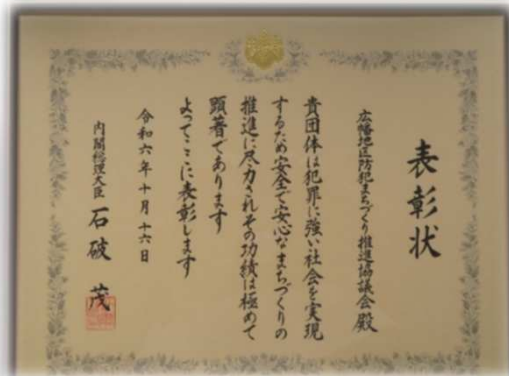 表彰状
広幡地区防犯まちづくり推進協議会殿
貴団体は犯罪に強い社会を実現
するため安全で安心なまちづくりの
推進に尽力されその功績は極めて
顕著であります
よってここに表彰します
令和六年十月十六日
内閣総理大臣 石破 茂